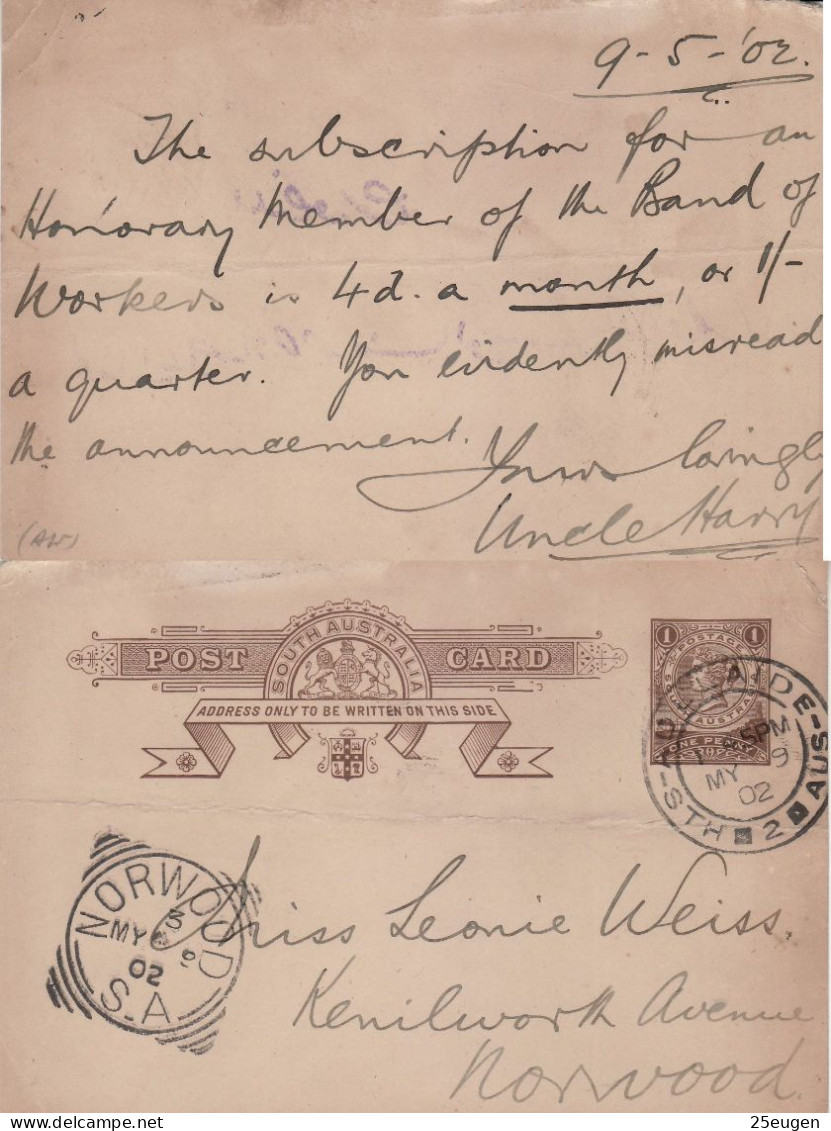 9-5-'02.
The subscription for an
Honorary Member of the Band of
Workers is 4d. a month, or 1/-
a quarter. You evidently misread
the announcement.
Yours lovingly
Uncle Harry
(AW)
POST CARD
SOUTH AUSTRALIA
ADDRESS ONLY TO BE WRITTEN ON THIS SIDE.
1 POSTAGE 1
SOUTH AUSTRALIA
ONE PENNY
ADELAIDE-STH-AUS-
5PM
MY 9
02
2
NORWOOD
MY 9
02
S.A
Miss Leonie Weiss.
Kenilworth Avenue
Norwood.
25eugen